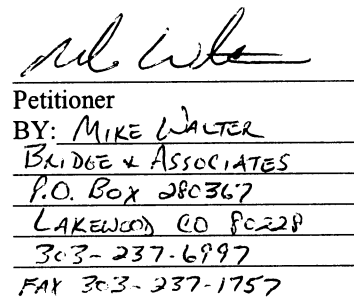 Petitioner
BY: MIKE WALTER
BRIDGE & ASSOCIATES
P.O. BOX 280367
LAKEWOOD CO 80228
303-237-6997
FAX 303-237-1757